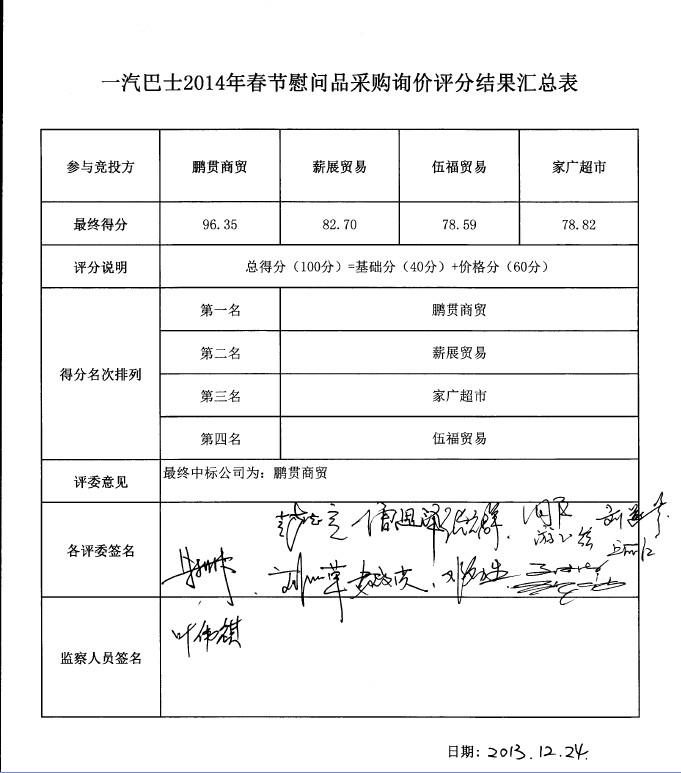 一汽巴士2014年春节慰问品采购询价评分结果汇总表
参与竞投方 鹏贯商贸 薪展贸易 伍福贸易 家广超市
最终得分 96.35 82.70 78.59 78.82
评分说明 总得分（100分）=基础分（40分）+价格分（60分）
得分名次排列
第一名 鹏贯商贸
第二名 薪展贸易
第三名 家广超市
第四名 伍福贸易
评委意见 最终中标公司为：鹏贯商贸
各评委签名
监察人员签名 叶伟镇
日期：2013.12.24.